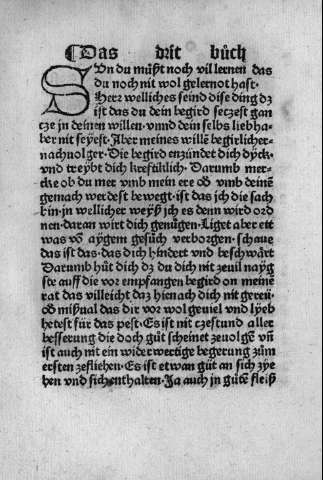 ¶ Das drit bůch
SVn du můst noch vil lernen das
du noch nit wol gelernot hast.
Herr welliches seind dise ding dz
ist das du dein begird seczest gan
tze jn deinen willen vnnd dein selbs liebha-
ber nit seyest. Aber meines willē begirlicher
nachuolger. Die begird enzündet dich dyck.
vnd treybt dich kreftiklich. Darumb mer-
cke ob du mer vmb mein ere oď vmb deinē
gemach werdest bewegt. ist das jch die sach
bin. jn wellicher weyß jch es denn wird ord
nen. daran wirt dich genůgen. Liget aber ett
was võ aygem gesůch verborgen. schaue
das ist das. das dich hindert vnd beschwärt
Darumb hůt dich dz du dich nit zeuil nayg
ste auff die vor empfangen begird on meinē
rat das villeicht daz hienach dich nit gereü.
oď mißual das dir vor wol geviel vnd lyeb
hetest für das pest. Es ist nit czestund aller
besserung die doch gůt scheinet zeuolgē vñ
ist auch nit ein widerwertige begerung zům
ersten zefliehen. Es ist etwan gůt an sich zye
hen vnd sich enthalten. Ja auch jn gůtē fleiß